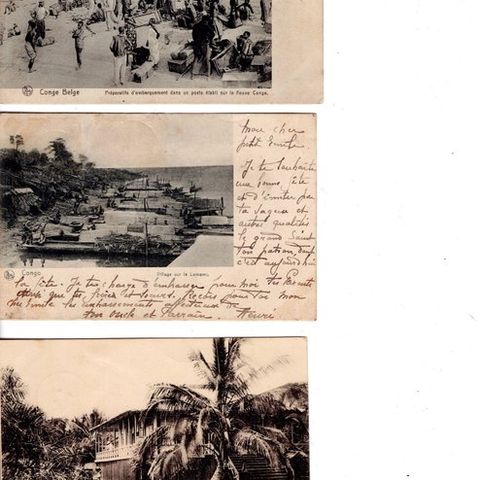 Congo Belge
Préparatifs d'embarquement dans un poste établi sur le fleuve Congo.
Mon cher
petit Emile.
Je te souhaite
une bonne fête
et d'imiter par
ta sagesse et
autres qualités
le grand Saint
ton patron dont
c'est aujourd'hui
Congo
Village sur le Lomami.
la fête. Je te charge d'embrasser pour moi tes Parents
que tes frères et soeurs. Reçois pour toi mon
les embrassements affectueux de
ton oncle et Parrain. Henri